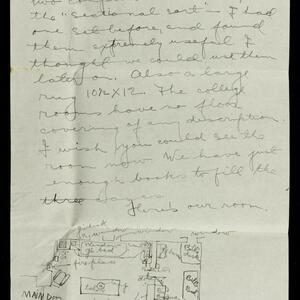 two comp
the "sectional sort" – I had
one set before, and found
them extremely useful I
thought we could use them
later on. Also a large
rug 10½ X 12. The college
rooms have no floor
covering of any description.
I wish you could see the
room now We have just
enough books to fill the
three cases
Here's our room.
window window window
Window
fireplace
Bill's
desk
Bill's
Bed
MAIN DOO